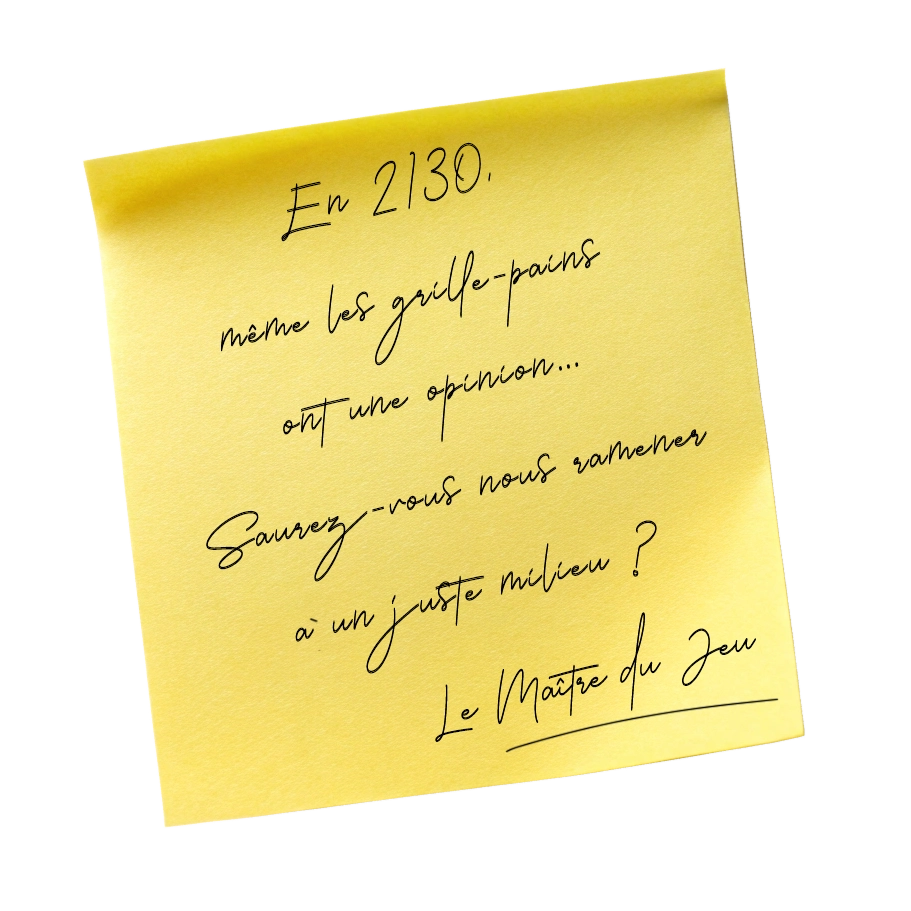 En 2130,
même les grille-pains
ont une opinion...
Saurez-vous nous ramener
à un juste milieu ?
Le Maître du Jeu